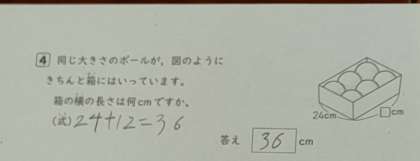 4 同じ大きさのボールが，図のように
きちんと箱にはいっています。
箱の横の長さは何cmですか。
(式) 24+12=36
24cm
□cm
答え 36 cm